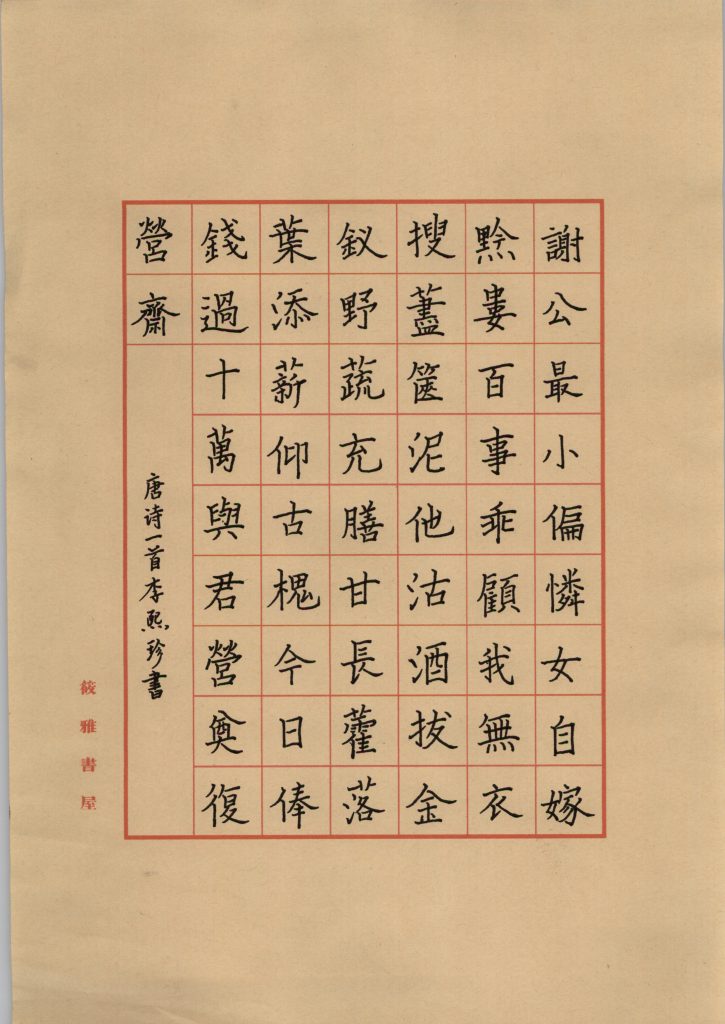 謝公最小偏憐女自嫁
黔婁百事乖顧我無衣
搜藎篋泥他沽酒拔金
釵野蔬充膳甘長藿落
葉添薪仰古槐今日俸
錢過十萬與君營奠復
營齋
唐诗一首李熙珍書
筱雅書屋